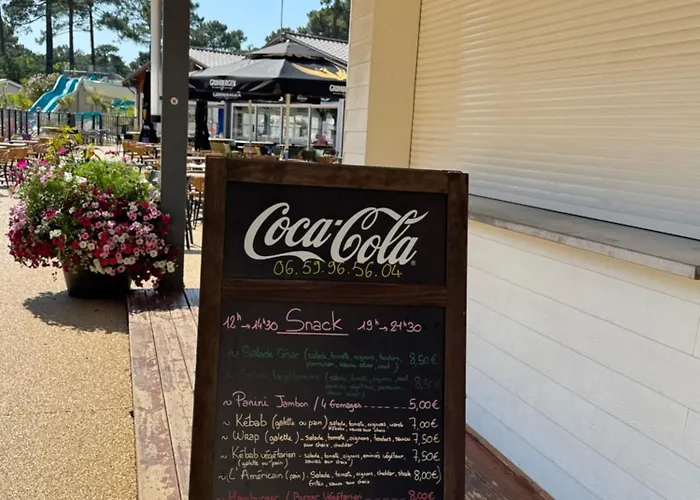 GRIMBERGEN
GRIMBERGEN
Coca-Cola
06.59.96.56.04
12h → 14h30 Snack 19h → 21h30
~ Salade César (salade, tomate, oignons, tenders,
parmesan, sauce césar, oeuf) 8,50€
~ Salade Végétarienne (salade, tomate, oignons, oeuf
8,50€
~ Panini Jambon / 4 fromages 5,00€
~ Kébab (galette ou pain) salade, tomate, oignons, viande
Kébab, sauce au choix 7,00€
~ Wrap (galette) - Salade, tomate, oignons, tenders, sauce
au choix, cheddar 7,50€
~ Kébab végétarien - Salade, tomate, oignons, émincé
(galette ou pain) végétarien, sauce au choix 7,50€
~ L'Américain (pain) - Salade, tomate, oignons, cheddar, steak
frites, sauce au choix 8,00€
~ Hamburger / Burger Végétarien 8,00€